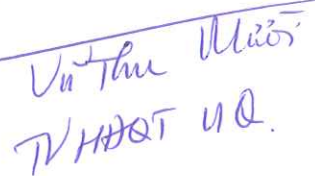 Vũ Thu Mười
TV HĐQT UQ.